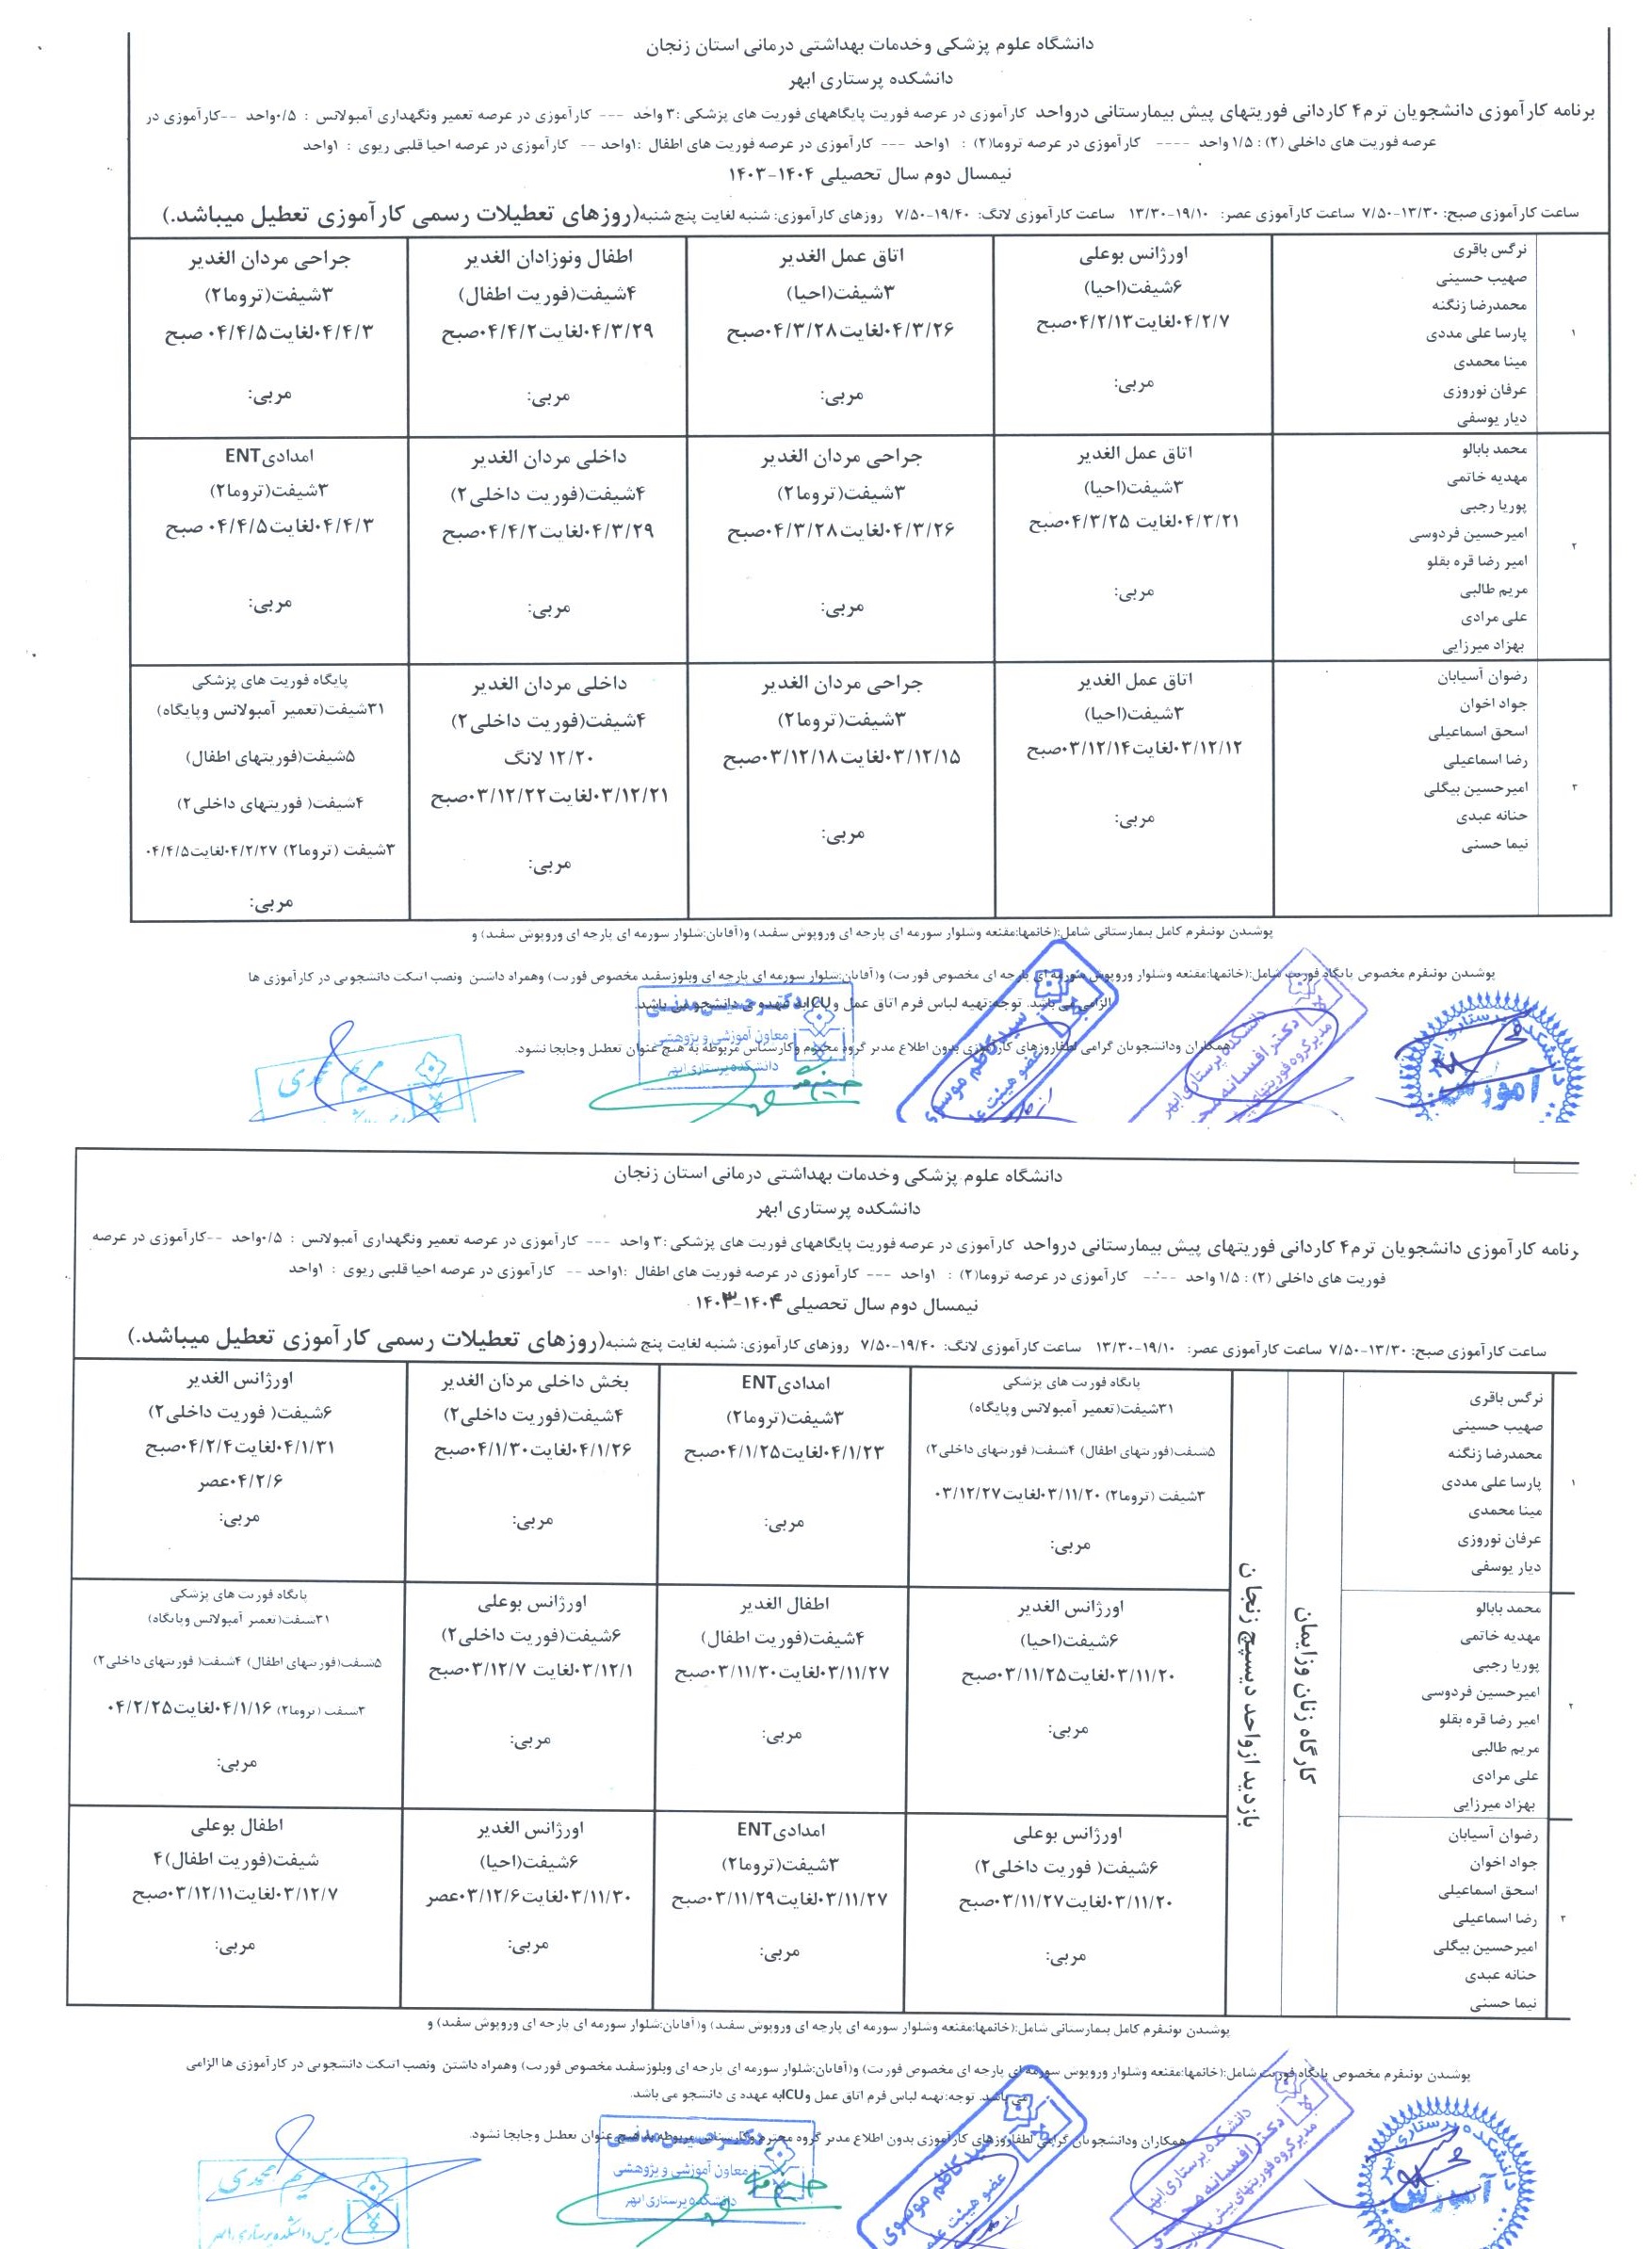 دانشگاه علوم پزشکی وخدمات بهداشتی درمانی استان زنجان
دانشکده پرستاری ابهر
برنامه کارآموزی دانشجویان ترم۴ کاردانی فوریتهای پیش بیمارستانی درواحد کارآموزی در عرصه فوریت پایگاههای فوریت های پزشکی :۳ واحد --- کارآموزی در عرصه تعمیر ونگهداری آمبولانس : ۰/۵واحد --کارآموزی در
عرصه فوریت های داخلی (۲) : ۱/۵ واحد ---- کارآموزی در عرصه تروما(۲) : ۱واحد --- کارآموزی در عرصه فوریت های اطفال :۱واحد -- کارآموزی در عرصه احیا قلبی ریوی : ۱واحد
نیمسال دوم سال تحصیلی ۱۴۰۴-۱۴۰۳
ساعت کارآموزی صبح: ۱۳/۳۰-۷/۵۰ ساعت کارآموزی عصر: ۱۹/۱۰-۱۳/۳۰ ساعت کارآموزی لانگ: ۱۹/۴۰-۷/۵۰ روزهای کارآموزی: شنبه لغایت پنج شنبه(روزهای تعطیلات رسمی کارآموزی تعطیل میباشد.)
۱
نرگس باقری
صهیب حسینی
محمدرضا زنگنه
پارسا علی مددی
مینا محمدی
عرفان نوروزی
دیار یوسفی
اورژانس بوعلی
۶شیفت(احیا)
۰۴/۲/۷لغایت۰۴/۲/۱۳صبح
مربی:
اتاق عمل الغدیر
۳شیفت(احیا)
۰۴/۳/۲۶لغایت۰۴/۳/۲۸صبح
مربی:
اطفال ونوزادان الغدیر
۴شیفت(فوریت اطفال)
۰۴/۳/۲۹لغایت۰۴/۴/۲صبح
مربی:
جراحی مردان الغدیر
۳شیفت(تروما۲)
۰۴/۴/۳لغایت۰۴/۴/۵ صبح
مربی:
۲
محمد بابالو
مهدیه خاتمی
پوریا رجبی
امیرحسین فردوسی
امیر رضا قره بقلو
مریم طالبی
علی مرادی
بهزاد میرزایی
اتاق عمل الغدیر
۳شیفت(احیا)
۰۴/۳/۲۱لغایت ۰۴/۳/۲۵صبح
مربی:
جراحی مردان الغدیر
۳شیفت(تروما۲)
۰۴/۳/۲۶لغایت۰۴/۳/۲۸صبح
مربی:
داخلی مردان الغدیر
۴شیفت(فوریت داخلی۲)
۰۴/۳/۲۹لغایت۰۴/۴/۲صبح
مربی:
امدادیENT
۳شیفت(تروما۲)
۰۴/۴/۳لغایت۰۴/۴/۵ صبح
مربی:
۳
رضوان آسیابان
جواد اخوان
اسحق اسماعیلی
رضا اسماعیلی
امیرحسین بیگلی
حنانه عبدی
نیما حسنی
اتاق عمل الغدیر
۳شیفت(احیا)
۰۳/۱۲/۱۲لغایت۰۳/۱۲/۱۴صبح
مربی:
جراحی مردان الغدیر
۳شیفت(تروما۲)
۰۳/۱۲/۱۵لغایت۰۳/۱۲/۱۸صبح
مربی:
داخلی مردان الغدیر
۴شیفت(فوریت داخلی۲)
۱۲/۲۰ لانگ
۰۳/۱۲/۲۱لغایت۰۳/۱۲/۲۲صبح
مربی:
پایگاه فوریت های پزشکی
۳۱شیفت(تعمیر آمبولانس وپایگاه)
۵شیفت(فوریتهای اطفال)
۴شیفت( فوریتهای داخلی۲)
۳شیفت (تروما۲) ۰۴/۲/۲۷لغایت۰۴/۴/۵
مربی:
پوشیدن یونیفرم کامل بیمارستانی شامل:(خانمها:مقنعه وشلوار سورمه ای پارچه ای وروپوش سفید) و(آقایان:شلوار سورمه ای پارچه ای وروپوش سفید) و
پوشیدن یونیفرم مخصوص پایگاه فوریت شامل:(خانمها:مقنعه وشلوار وروپوش سورمه ای پارچه ای مخصوص فوریت) و(آقایان:شلوار سورمه ای پارچه ای وبلوزسفید مخصوص فوریت) وهمراه داشتن ونصب اتیکت دانشجویی در کارآموزی ها
الزامی می باشد. توجه:تهیه لباس فرم اتاق عمل وICUبه عهده ی دانشجو می باشد.
همکاران ودانشجویان گرامی لطفاروزهای کارآموزی بدون اطلاع مدیر گروه محترم وکارشناس مربوطه به هیچ عنوان تعطیل وجابجا نشود.
آموزش
دانشکده پرستاری ابهر
دکتر افسانه
مدیرگروه فوریتهای
سید کاظم موسوی
عضو هیئت
دکتر حسین مدنی
معاون آموزشی و پژوهشی
دانشکده پرستاری ابهر
مریم محمدی
دانشگاه علوم پزشکی وخدمات بهداشتی درمانی استان زنجان
دانشکده پرستاری ابهر
رنامه کارآموزی دانشجویان ترم۴ کاردانی فوریتهای پیش بیمارستانی درواحد کارآموزی در عرصه فوریت پایگاههای فوریت های پزشکی :۳ واحد --- کارآموزی در عرصه تعمیر ونگهداری آمبولانس : ۰/۵واحد --کارآموزی در عرصه
فوریت های داخلی (۲) : ۱/۵ واحد ---- کارآموزی در عرصه تروما(۲) : ۱واحد --- کارآموزی در عرصه فوریت های اطفال :۱واحد -- کارآموزی در عرصه احیا قلبی ریوی : ۱واحد
نیمسال دوم سال تحصیلی ۱۴۰۴-۱۴۰۳
ساعت کارآموزی صبح: ۱۳/۳۰-۷/۵۰ ساعت کارآموزی عصر: ۱۹/۱۰-۱۳/۳۰ ساعت کارآموزی لانگ: ۱۹/۴۰-۷/۵۰ روزهای کارآموزی: شنبه لغایت پنج شنبه(روزهای تعطیلات رسمی کارآموزی تعطیل میباشد.)
۱
نرگس باقری
صهیب حسینی
محمدرضا زنگنه
پارسا علی مددی
مینا محمدی
عرفان نوروزی
دیار یوسفی
کارگاه زنان وزایمان
بازدید ازواحد دیسپچ زنجان
پایگاه فوریت های پزشکی
۳۱شیفت(تعمیر آمبولانس وپایگاه)
۵شیفت(فوریتهای اطفال) ۴شیفت( فوریتهای داخلی۲)
۳شیفت (تروما۲) ۰۳/۱۱/۲۰لغایت۰۳/۱۲/۲۷
مربی:
امدادیENT
۳شیفت(تروما۲)
۰۴/۱/۲۳لغایت۰۴/۱/۲۵صبح
مربی:
بخش داخلی مردان الغدیر
۴شیفت(فوریت داخلی۲)
۰۴/۱/۲۶لغایت۰۴/۱/۳۰صبح
مربی:
اورژانس الغدیر
۶شیفت( فوریت داخلی۲)
۰۴/۱/۳۱لغایت۰۴/۲/۴صبح
۰۴/۲/۶عصر
مربی:
۲
محمد بابالو
مهدیه خاتمی
پوریا رجبی
امیرحسین فردوسی
امیر رضا قره بقلو
مریم طالبی
علی مرادی
بهزاد میرزایی
اورژانس الغدیر
۶شیفت(احیا)
۰۳/۱۱/۲۰لغایت۰۳/۱۱/۲۵صبح
مربی:
اطفال الغدیر
۴شیفت(فوریت اطفال)
۰۳/۱۱/۲۷لغایت۰۳/۱۱/۳۰صبح
مربی:
اورژانس بوعلی
۶شیفت(فوریت داخلی۲)
۰۳/۱۲/۱لغایت ۰۳/۱۲/۷صبح
مربی:
پایگاه فوریت های پزشکی
۳۱شیفت(تعمیر آمبولانس وپایگاه)
۵شیفت(فوریتهای اطفال) ۴شیفت( فوریتهای داخلی۲)
۳شیفت (تروما۲) ۰۴/۱/۱۶لغایت۰۴/۲/۲۵
مربی:
۳
رضوان آسیابان
جواد اخوان
اسحق اسماعیلی
رضا اسماعیلی
امیرحسین بیگلی
حنانه عبدی
نیما حسنی
اورژانس بوعلی
۶شیفت( فوریت داخلی۲)
۰۳/۱۱/۲۰لغایت۰۳/۱۱/۲۷صبح
مربی:
امدادیENT
۳شیفت(تروما۲)
۰۳/۱۱/۲۷لغایت۰۳/۱۱/۲۹صبح
مربی:
اورژانس الغدیر
۶شیفت(احیا)
۰۳/۱۱/۳۰لغایت۰۳/۱۲/۶عصر
مربی:
اطفال بوعلی
شیفت(فوریت اطفال)۴
۰۳/۱۲/۷لغایت۰۳/۱۲/۱۱صبح
مربی:
پوشیدن یونیفرم کامل بیمارستانی شامل:(خانمها:مقنعه وشلوار سورمه ای پارچه ای وروپوش سفید) و(آقایان:شلوار سورمه ای پارچه ای وروپوش سفید) و
پوشیدن یونیفرم مخصوص پایگاه فوریت شامل:(خانمها:مقنعه وشلوار وروپوش سورمه ای پارچه ای مخصوص فوریت) و(آقایان:شلوار سورمه ای پارچه ای وبلوزسفید مخصوص فوریت) وهمراه داشتن ونصب اتیکت دانشجویی در کارآموزی ها الزامی
می باشد. توجه:تهیه لباس فرم اتاق عمل وICUبه عهده ی دانشجو می باشد.
همکاران ودانشجویان گرامی لطفاروزهای کارآموزی بدون اطلاع مدیر گروه محترم وکارشناس مربوطه به هیچ عنوان تعطیل وجابجا نشود.
دانشکده پرستاری ابهر
آموزش
دانشکده پرستاری ابهر
دکتر افسانه
مدیرگروه فوریتهای پیش
سید کاظم موسوی
عضو هیئت
دکتر حسین مدنی
معاون آموزشی و پژوهشی
دانشکده پرستاری ابهر
مریم محمدی
رئیس دانشکده پرستاری ابهر